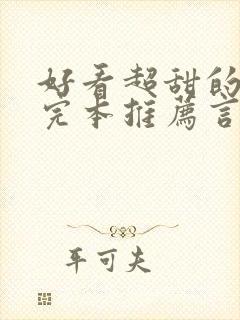 好看超甜的
完本推薦言
平可夫